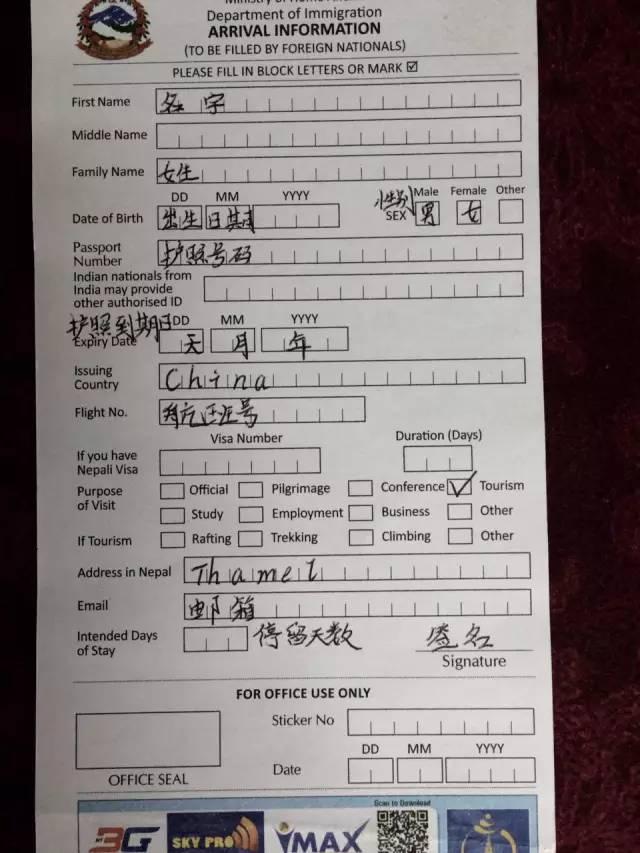 Ministry of Home
Department of Immigration
ARRIVAL INFORMATION
(TO BE FILLED BY FOREIGN NATIONALS)
PLEASE FILL IN BLOCK LETTERS OR MARK ☑
First Name 名字
Middle Name
Family Name 姓
DD MM YYYY 性别 Male Female Other
Date of Birth 出生日期 SEX 男 女
Passport
Number 护照号码
Indian nationals from
India may provide
other authorised ID
护照到期日 DD MM YYYY
Expiry Date 天 月 年
Issuing
Country China
Flight No. 号
Visa Number Duration (Days)
If you have
Nepali Visa
Purpose
of Visit
Official Pilgrimage Conference ✓ Tourism
Study Employment Business Other
If Tourism Rafting Trekking Climbing Other
Address in Nepal Thamel
Email 邮箱
Intended Days
of Stay 停留天数 签名
Signature
FOR OFFICE USE ONLY
Sticker No
DD MM YYYY
OFFICE SEAL Date
Scan to Download
3G SKY PRO YMAX